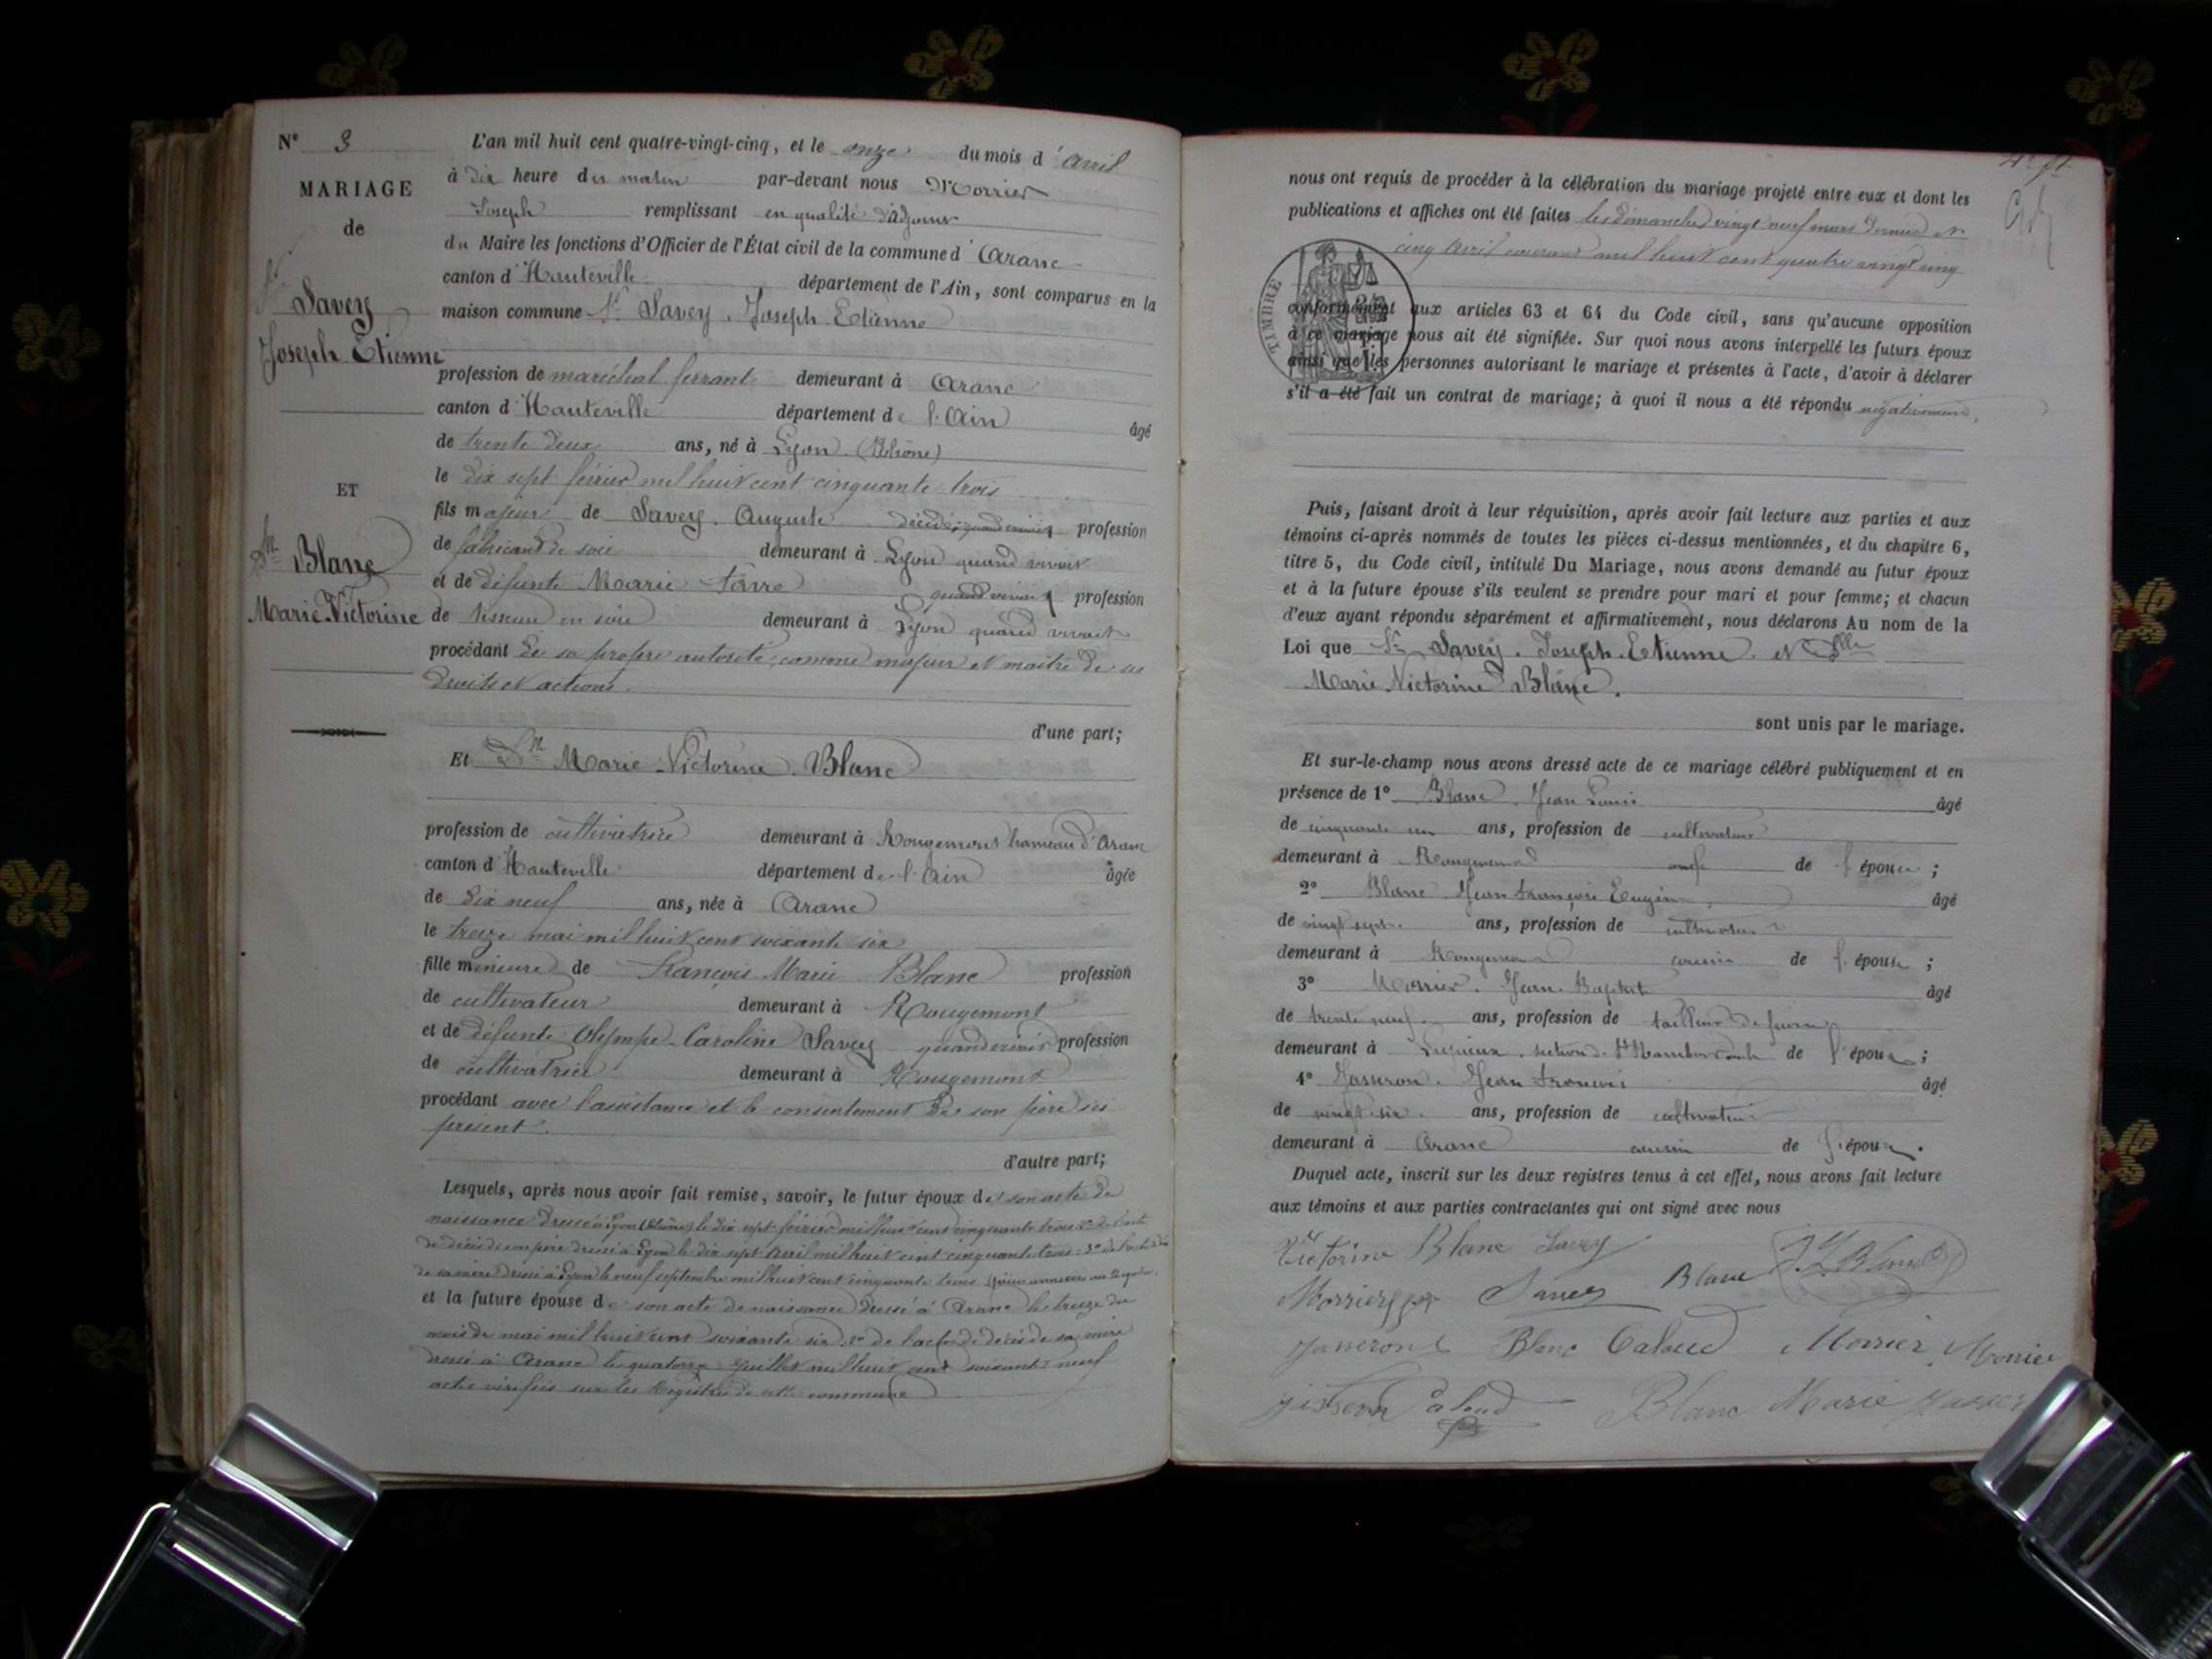 N° 3
MARIAGE
de
Savey
Joseph Etienne
ET
Dlle Blanc
Marie Victorine
L'an mil huit cent quatre-vingt-cinq, et le onze du mois d'avril
à dix heure du matin par-devant nous Morrier
Joseph remplissant en qualité d'adjoint
du Maire les fonctions d'Officier de l'État civil de la commune d'Aranc
canton d'Hauteville département de l'Ain, sont comparus en la
maison commune Sr Savey Joseph Etienne
profession de maréchal ferrant demeurant à Aranc
canton d'Hauteville département de l'Ain âgé
de trente deux ans, né à Lyon (Rhône)
le dix sept février mil huit cent cinquante trois
fils majeur de Savey Auguste décédé, quand vivait profession
de fabricant de soie demeurant à Lyon quand vivait
et de défunte Marie Favre quand vivait profession
de tisseuse en soie demeurant à Lyon quand vivait
procédant de sa propre autorité comme majeur et maître de ses
droits et actions.
d'une part;
Et Dlle Marie Victorine Blanc
profession de cultivatrice demeurant à Rougemont hameau d'Aranc
canton d'Hauteville département de l'Ain âgée
de dix neuf ans, née à Aranc
le treize mai mil huit cent soixante six
fille mineure de François Marie Blanc profession
de cultivateur demeurant à Rougemont
et de défunte Olympe Caroline Savey quand vivait profession
de cultivatrice demeurant à Rougemont
procédant avec l'assistance et le consentement de son père ici
présent.
d'autre part;
Lesquels, après nous avoir fait remise, savoir, le futur époux de son acte de
naissance dressé à Lyon (Rhône) le dix sept février mil huit cent cinquante trois 2° de l'acte
de décès de son père dressé à Lyon le dix sept avril mil huit cent cinquante trois 3° de l'acte de
de sa mère dressé à Lyon le neuf septembre mil huit cent cinquante trois
et la future épouse de son acte de naissance dressé à Aranc le treize du
mois de mai mil huit cent soixante six, 2° de l'acte de décès de sa mère
dressé à Aranc le quatorze juillet mil huit cent soixante neuf
actes vérifiés sur les Registres de cette commune
nous ont requis de procéder à la célébration du mariage projeté entre eux et dont les
publications et affiches ont été faites les dimanches vingt neuf mars dernier et
cinq avril courant mil huit cent quatre vingt cinq
TIMBRE
conformément aux articles 63 et 64 du Code civil, sans qu'aucune opposition
à ce mariage nous ait été signifiée. Sur quoi nous avons interpellé les futurs époux
ainsi que les personnes autorisant le mariage et présentes à l'acte, d'avoir à déclarer
s'il a été fait un contrat de mariage; à quoi il nous a été répondu négativement,
Puis, faisant droit à leur réquisition, après avoir fait lecture aux parties et aux
témoins ci-après nommés de toutes les pièces ci-dessus mentionnées, et du chapitre 6,
titre 5, du Code civil, intitulé Du Mariage, nous avons demandé au futur époux
et à la future épouse s'ils veulent se prendre pour mari et pour femme; et chacun
d'eux ayant répondu séparément et affirmativement, nous déclarons Au nom de la
Loi que Sr Savey Joseph Etienne et Dlle
Marie Victorine Blanc.
sont unis par le mariage.
Et sur-le-champ nous avons dressé acte de ce mariage célébré publiquement et en
présence de 1° Blanc Jean Louis âgé
de cinquante un ans, profession de cultivateur
demeurant à Rougemont oncle de l'épouse;
2° Blanc Jean François Eugène âgé
de vingt sept ans, profession de cultivateur
demeurant à Rougemont cousin de l'épouse;
3° Morrier Jean Baptiste âgé
de trente neuf ans, profession de tailleur de pierre
demeurant à de l'époux;
4° Jasseron Jean François âgé
de vingt six ans, profession de cultivateur
demeurant à Aranc cousin de l'époux.
Duquel acte, inscrit sur les deux registres tenus à cet effet, nous avons fait lecture
aux témoins et aux parties contractantes qui ont signé avec nous
Victorine Blanc Savey J L Blanc
Morrier Savey Blanc
Jasseron Blanc Calaud Morrier Morrier
Calaud Blanc Marie